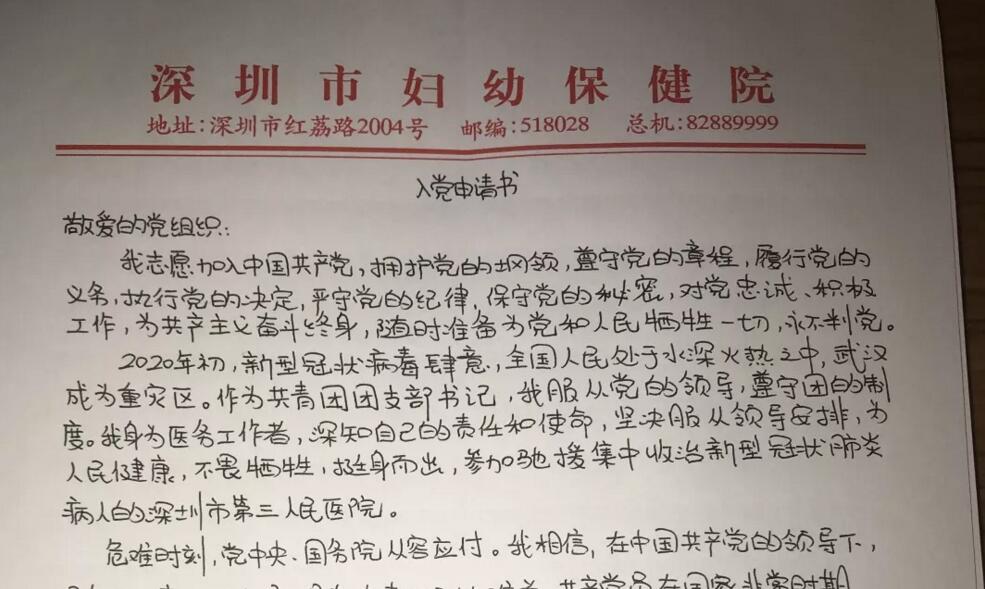 深圳市妇幼保健院
地址:深圳市红荔路2004号 邮编:518028 总机:82889999
入党申请书
敬爱的党组织:
我志愿加入中国共产党,拥护党的纲领,遵守党的章程,履行党的
义务,执行党的决定,严守党的纪律,保守党的秘密,对党忠诚、积极
工作,为共产主义奋斗终身,随时准备为党和人民牺牲一切,永不判党。
2020年初,新型冠状病毒肆意,全国人民处于水深火热之中,武汉
成为重灾区。作为共青团团支部书记,我服从党的领导,遵守团的制
度。我身为医务工作者,深知自己的责任和使命,坚决服从领导安排,为
人民健康,不畏牺牲,挺身而出,参加驰援集中收治新型冠状肺炎
病人的深圳市第三人民医院。
危难时刻,党中央、国务院从容应付。我相信,在中国共产党的领导下,
共产党员在国家非常时期